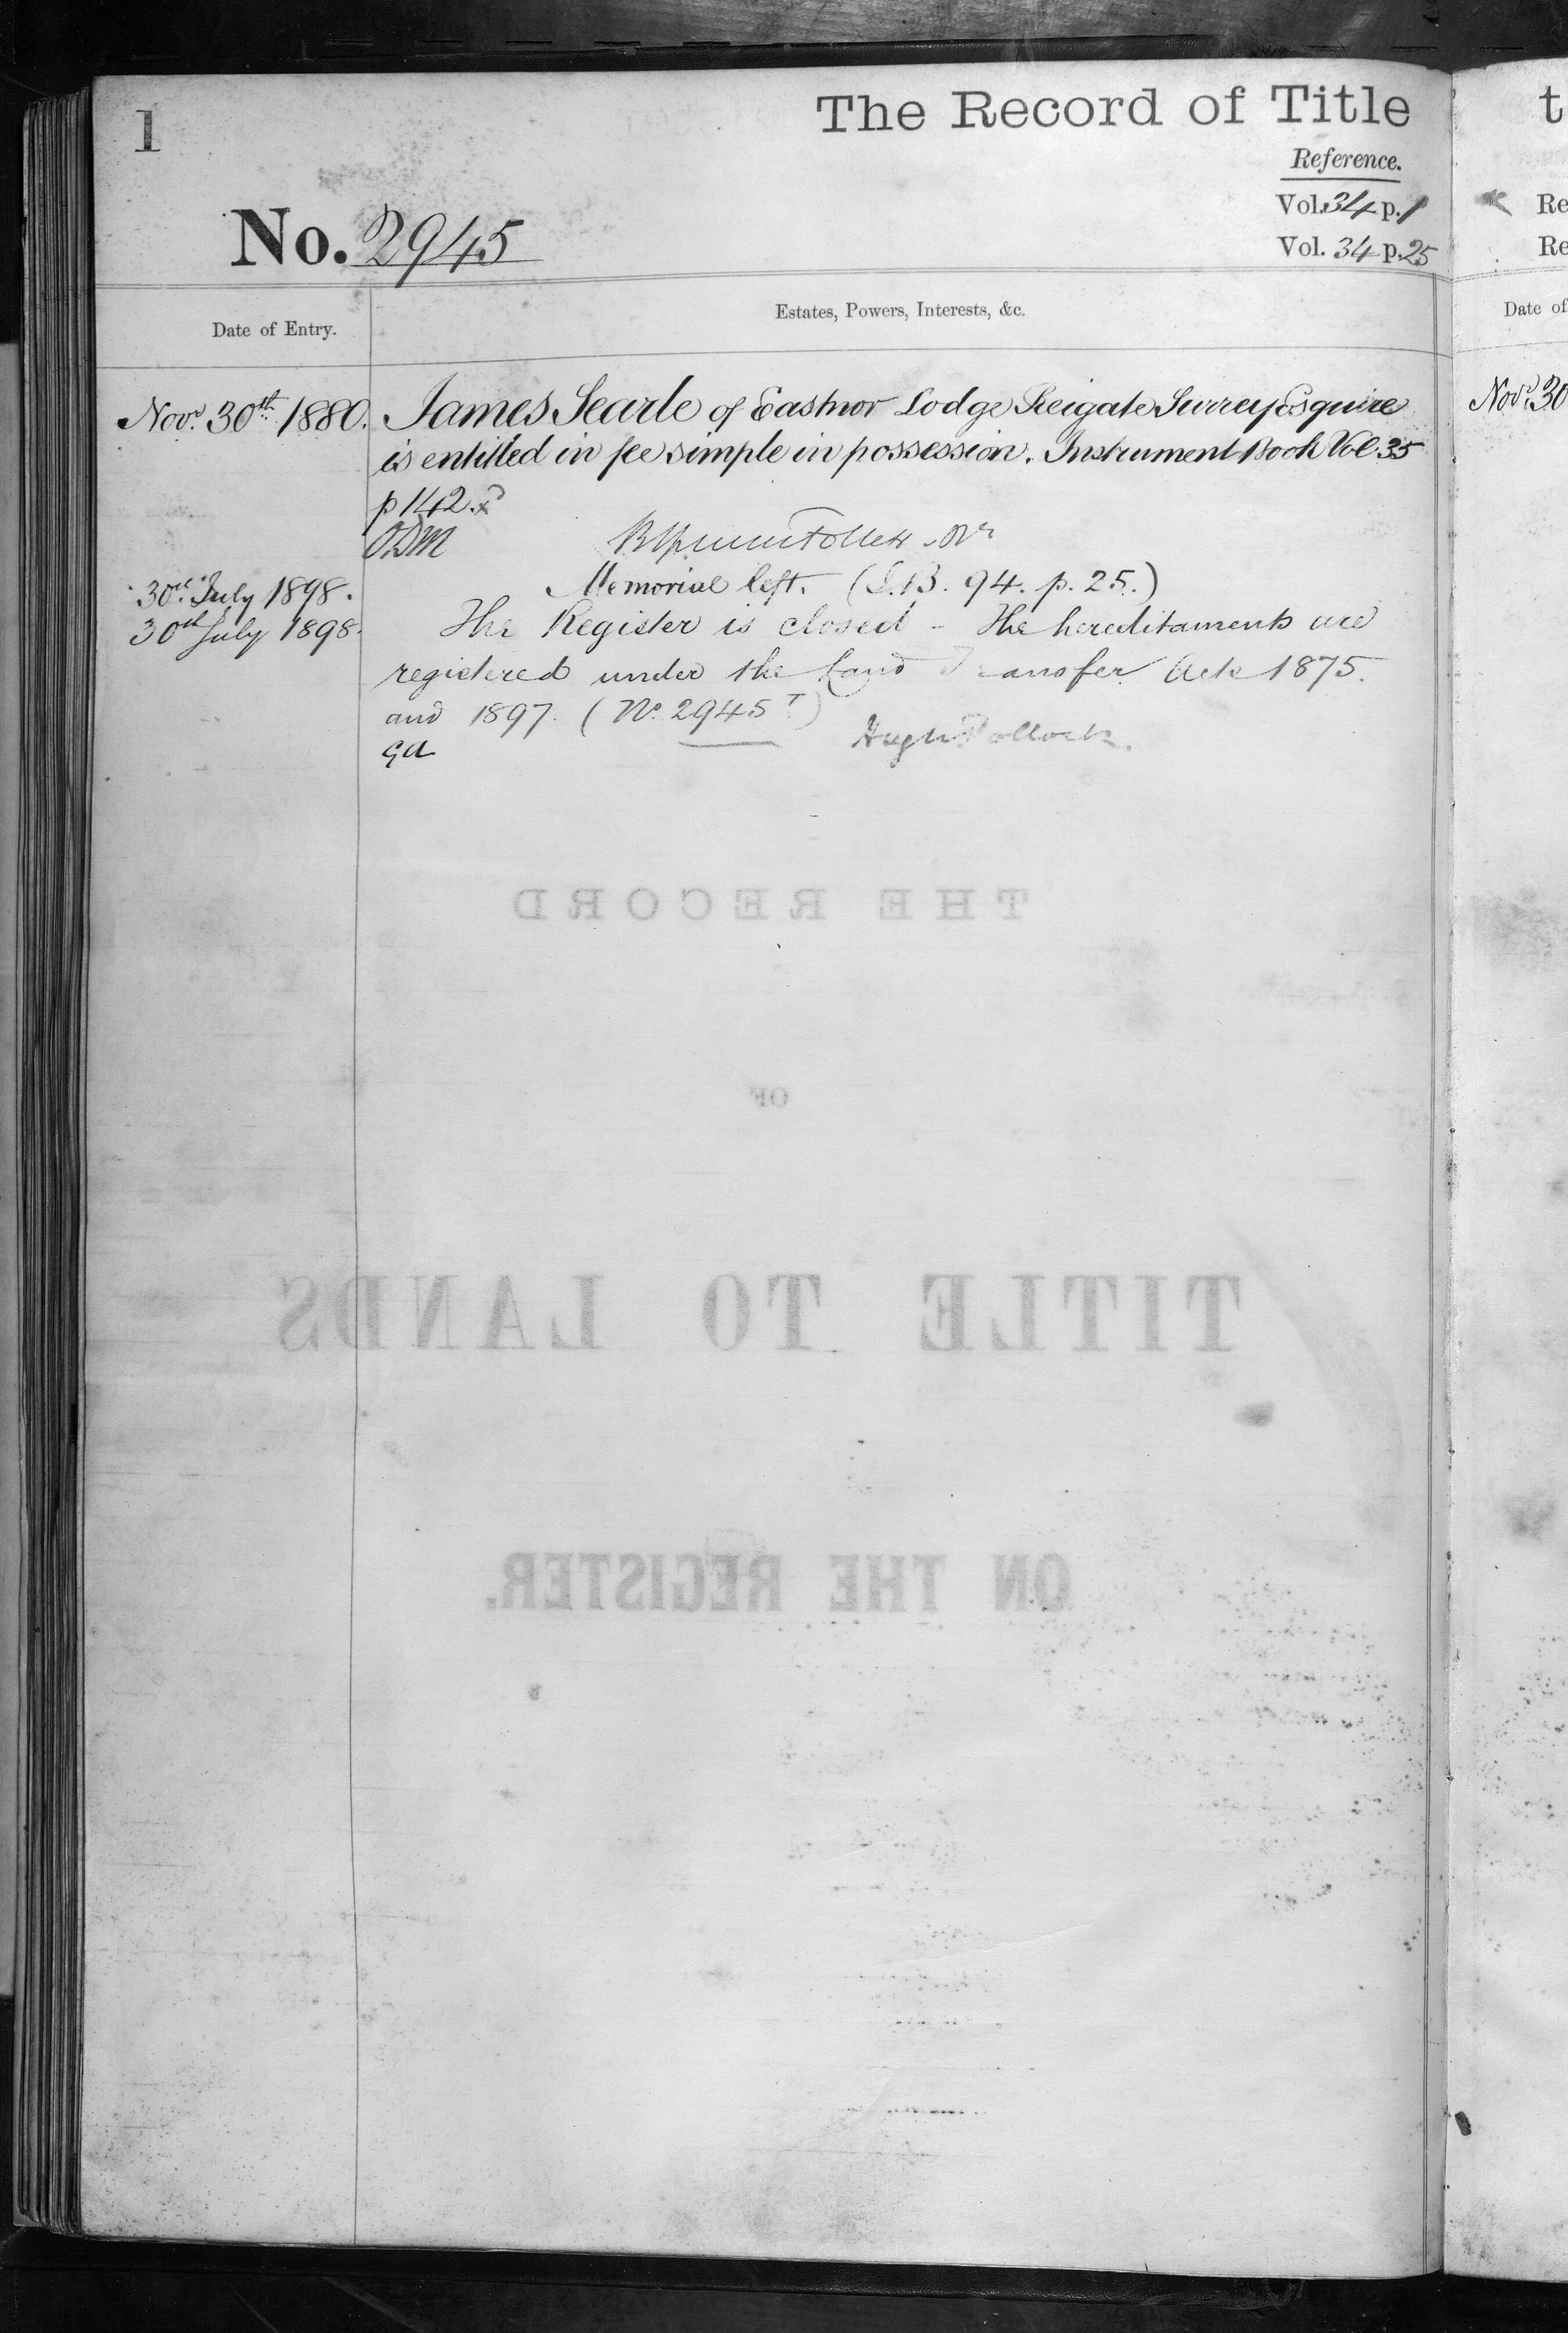 1
The Record of Title
Reference.
Vol. 34 p. 1
Vol. 34 p. 25
No. 2945
Date of Entry.
Estates, Powers, Interests, &c.
Novr. 30th 1880. James Searle of Eastnor Lodge Reigate Surrey Esquire
is entitled in fee simple in possession. Instrument Book Vol 35
p 142.
Follett
30th July 1898. Memorial left. (L.B. 94. p. 25.)
30th July 1898. The Register is closed - The hereditaments are
registered under the Land Transfer Acts 1875.
and 1897. (No. 2945 T.)
Hugh Pollock.
THE RECORD
OF
TITLE TO LANDS
ON THE REGISTER.
t
Re
Re
Date of
Novr. 30